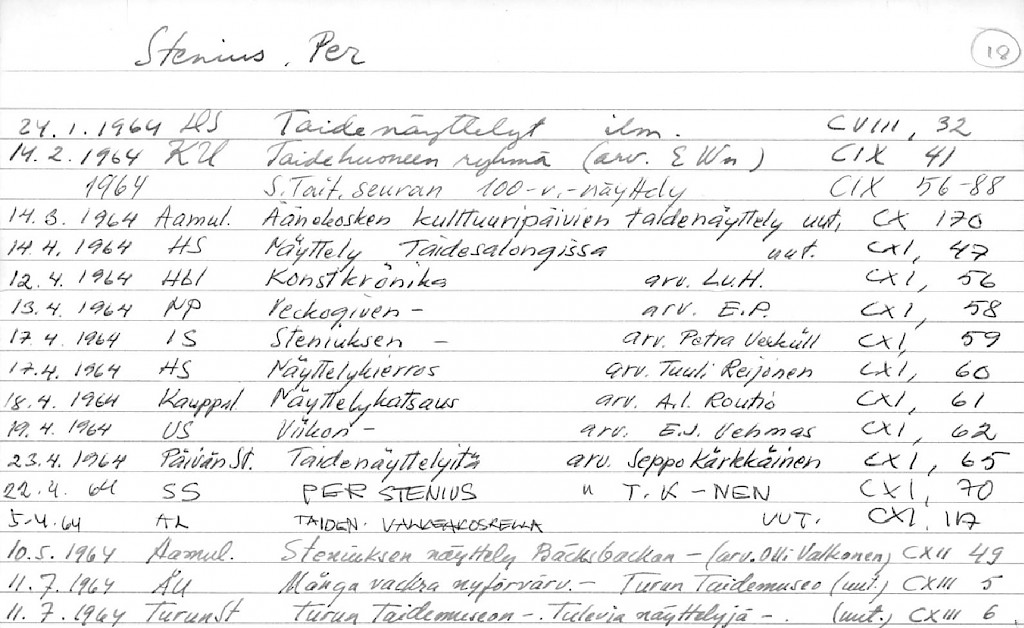 Stenius, Per
18
24.1.1964 HS Taidenäyttelyt ilm. CVIII, 32
14.2.1964 KU Taidehuoneen ryhmä (arv. E Wn) CIX 41
1964 S. Tait. seuran 100-v.-näyttely CIX 56-88
14.3.1964 Aamul. Äänekosken kulttuuripäivien taidenäyttely uut, CX 170
14.4.1964 HS Näyttely Taidesalongissa uut. CXI, 47
12.4.1964 Hbl Konstkrönika arv. L.v.H. CXI, 56
13.4.1964 NP Veckogiven - arv. E.P. CXI, 58
17.4.1964 IS Steniuksen - arv. Petra Uexküll CXI, 59
17.4.1964 HS Näyttelykierros arv. Tuuli Reijonen CXI, 60
18.4.1964 Kauppal Näyttelykatsaus arv. A.I. Routio CXI, 61
19.4.1964 US Viikon - arv. E.J. Vehmas CXI, 62
23.4.1964 PäivänSt. Taidenäyttelyitä arv. Seppo Kärkkäinen CXI, 65
22.4.64 SS PER STENIUS " T. K-NEN CXI, 70
5.4.64 AL TAIDEN. VALKEAKOSKELLA UUT. CXI, 117
10.5.1964 Aamul. Steniuksen näyttely Bäcksbackan - (arv. Olli Valkonen) CXII 49
11.7.1964 ÅU Många vackra nyförvärv. - Turun Taidemuseo (uut.) CXIII 5
11.7.1964 TurunSt Turun Taidemuseon -. Tulevia näyttelyjä -. (uut.) CXIII 6